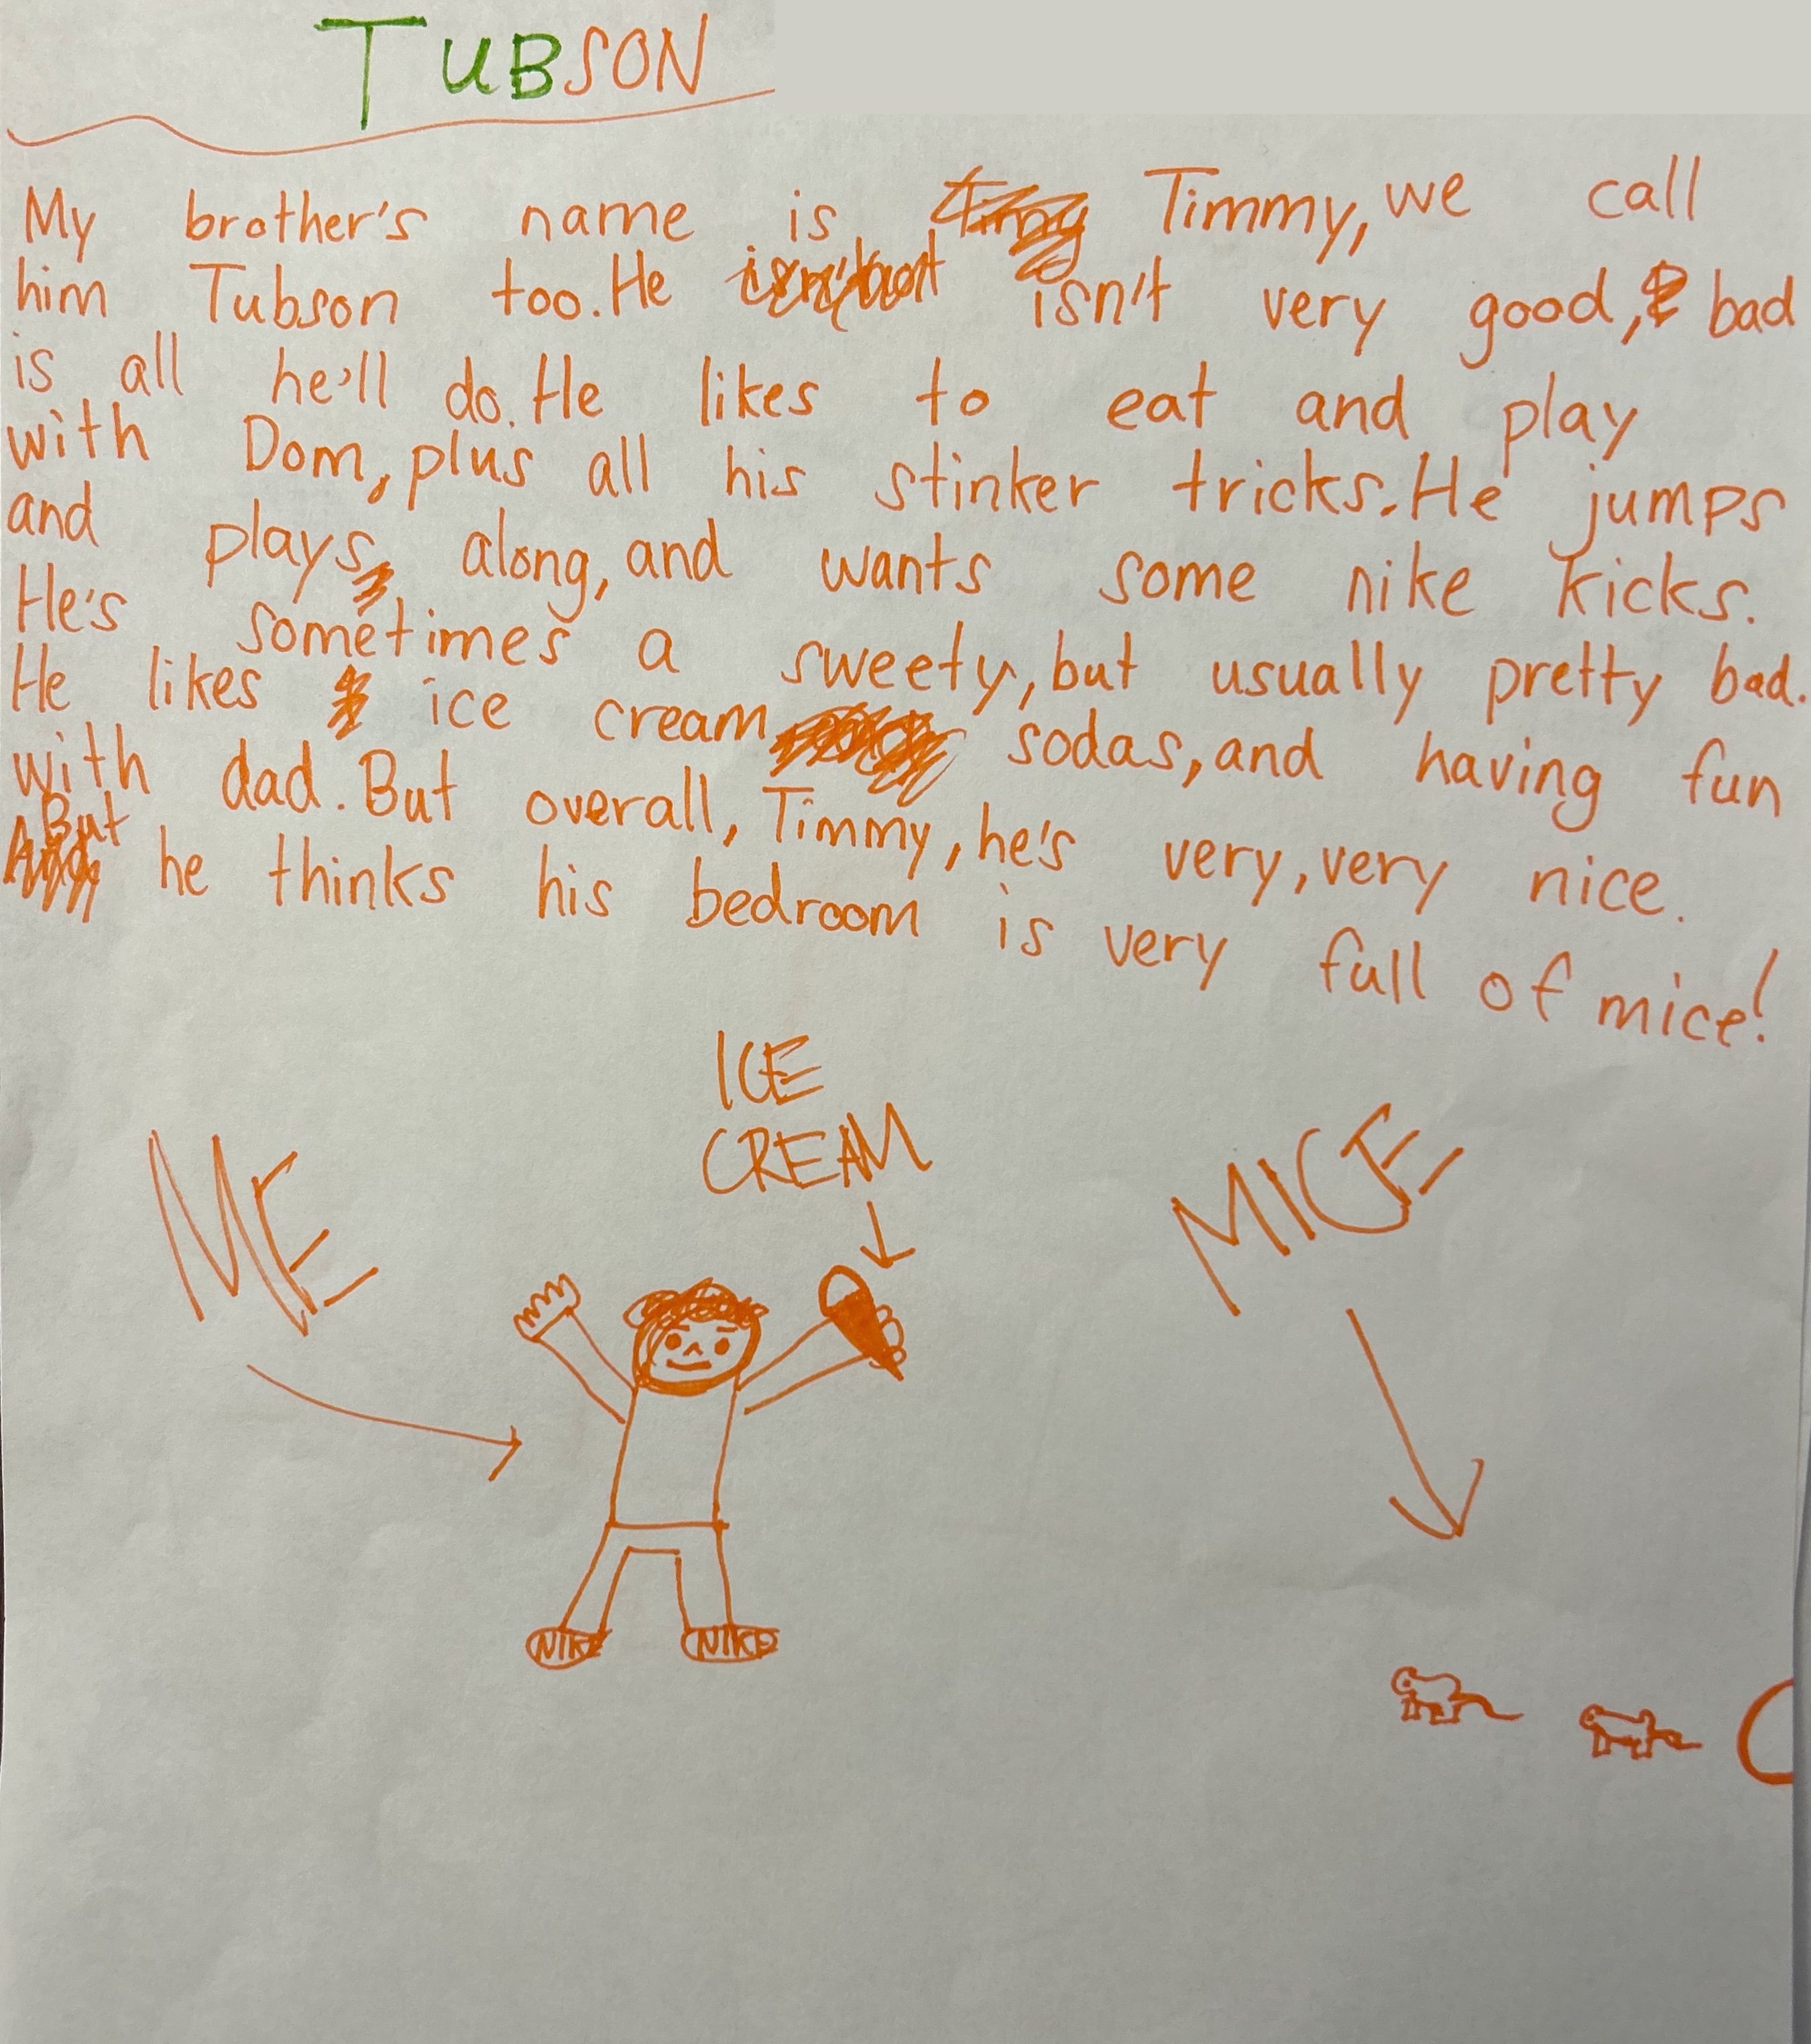 TUBSON
My brother's name is Timmy, we call
him Tubson too. He isn't very good, bad
is all he'll do. He likes to eat and play
with Dom, plus all his stinker tricks. He jumps
and plays along, and wants some nike kicks.
He's sometimes a sweety, but usually pretty bad.
He likes ice cream sodas, and having fun
with dad. But overall, Timmy, he's very, very nice.
But he thinks his bedroom is very full of mice!
ICE
CREAM
ME
MICE
NIKE NIKE